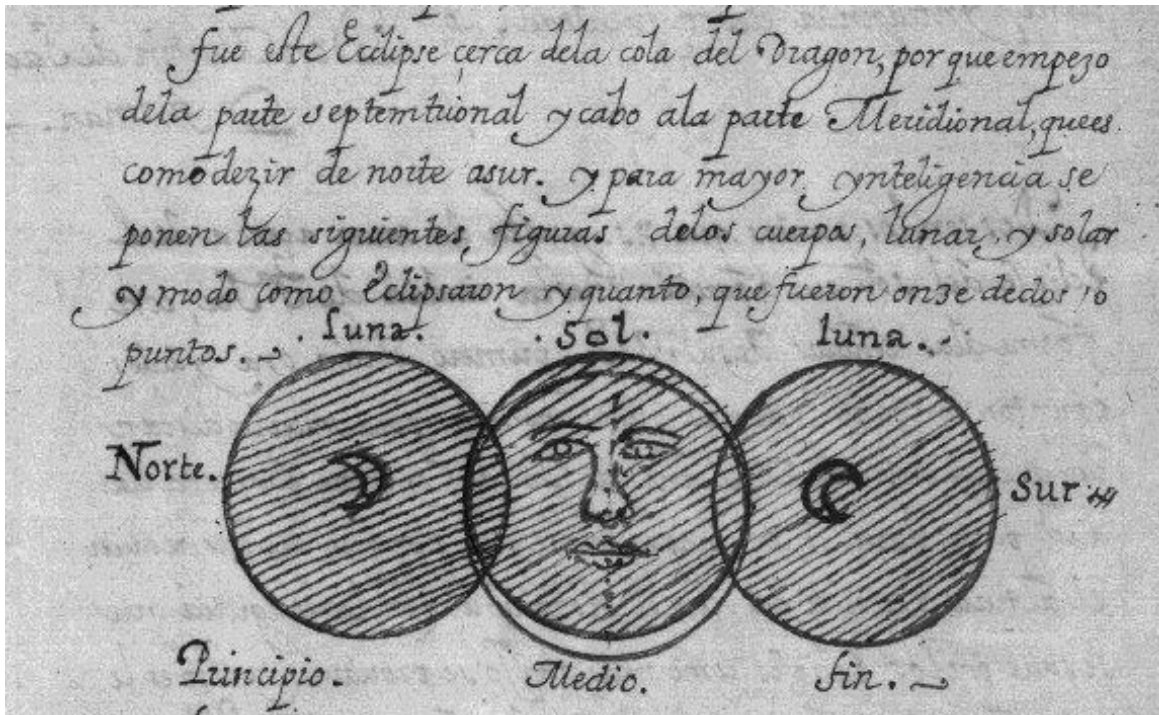 fue este Eclipse çerca dela cola del Dragon, por que empezo
dela parte septemtrional y cabo ala parte Meridional, quees
comodezir de norte asur. y para mayor ynteligencia se
ponen las siguientes, figuras delos cuerpos, lunar, y solar
y modo como Eclipsaron y quanto, que fueron onze dedos o
puntos.
luna. Sol. luna.
Norte. Sur
Principio. Medio. fin.